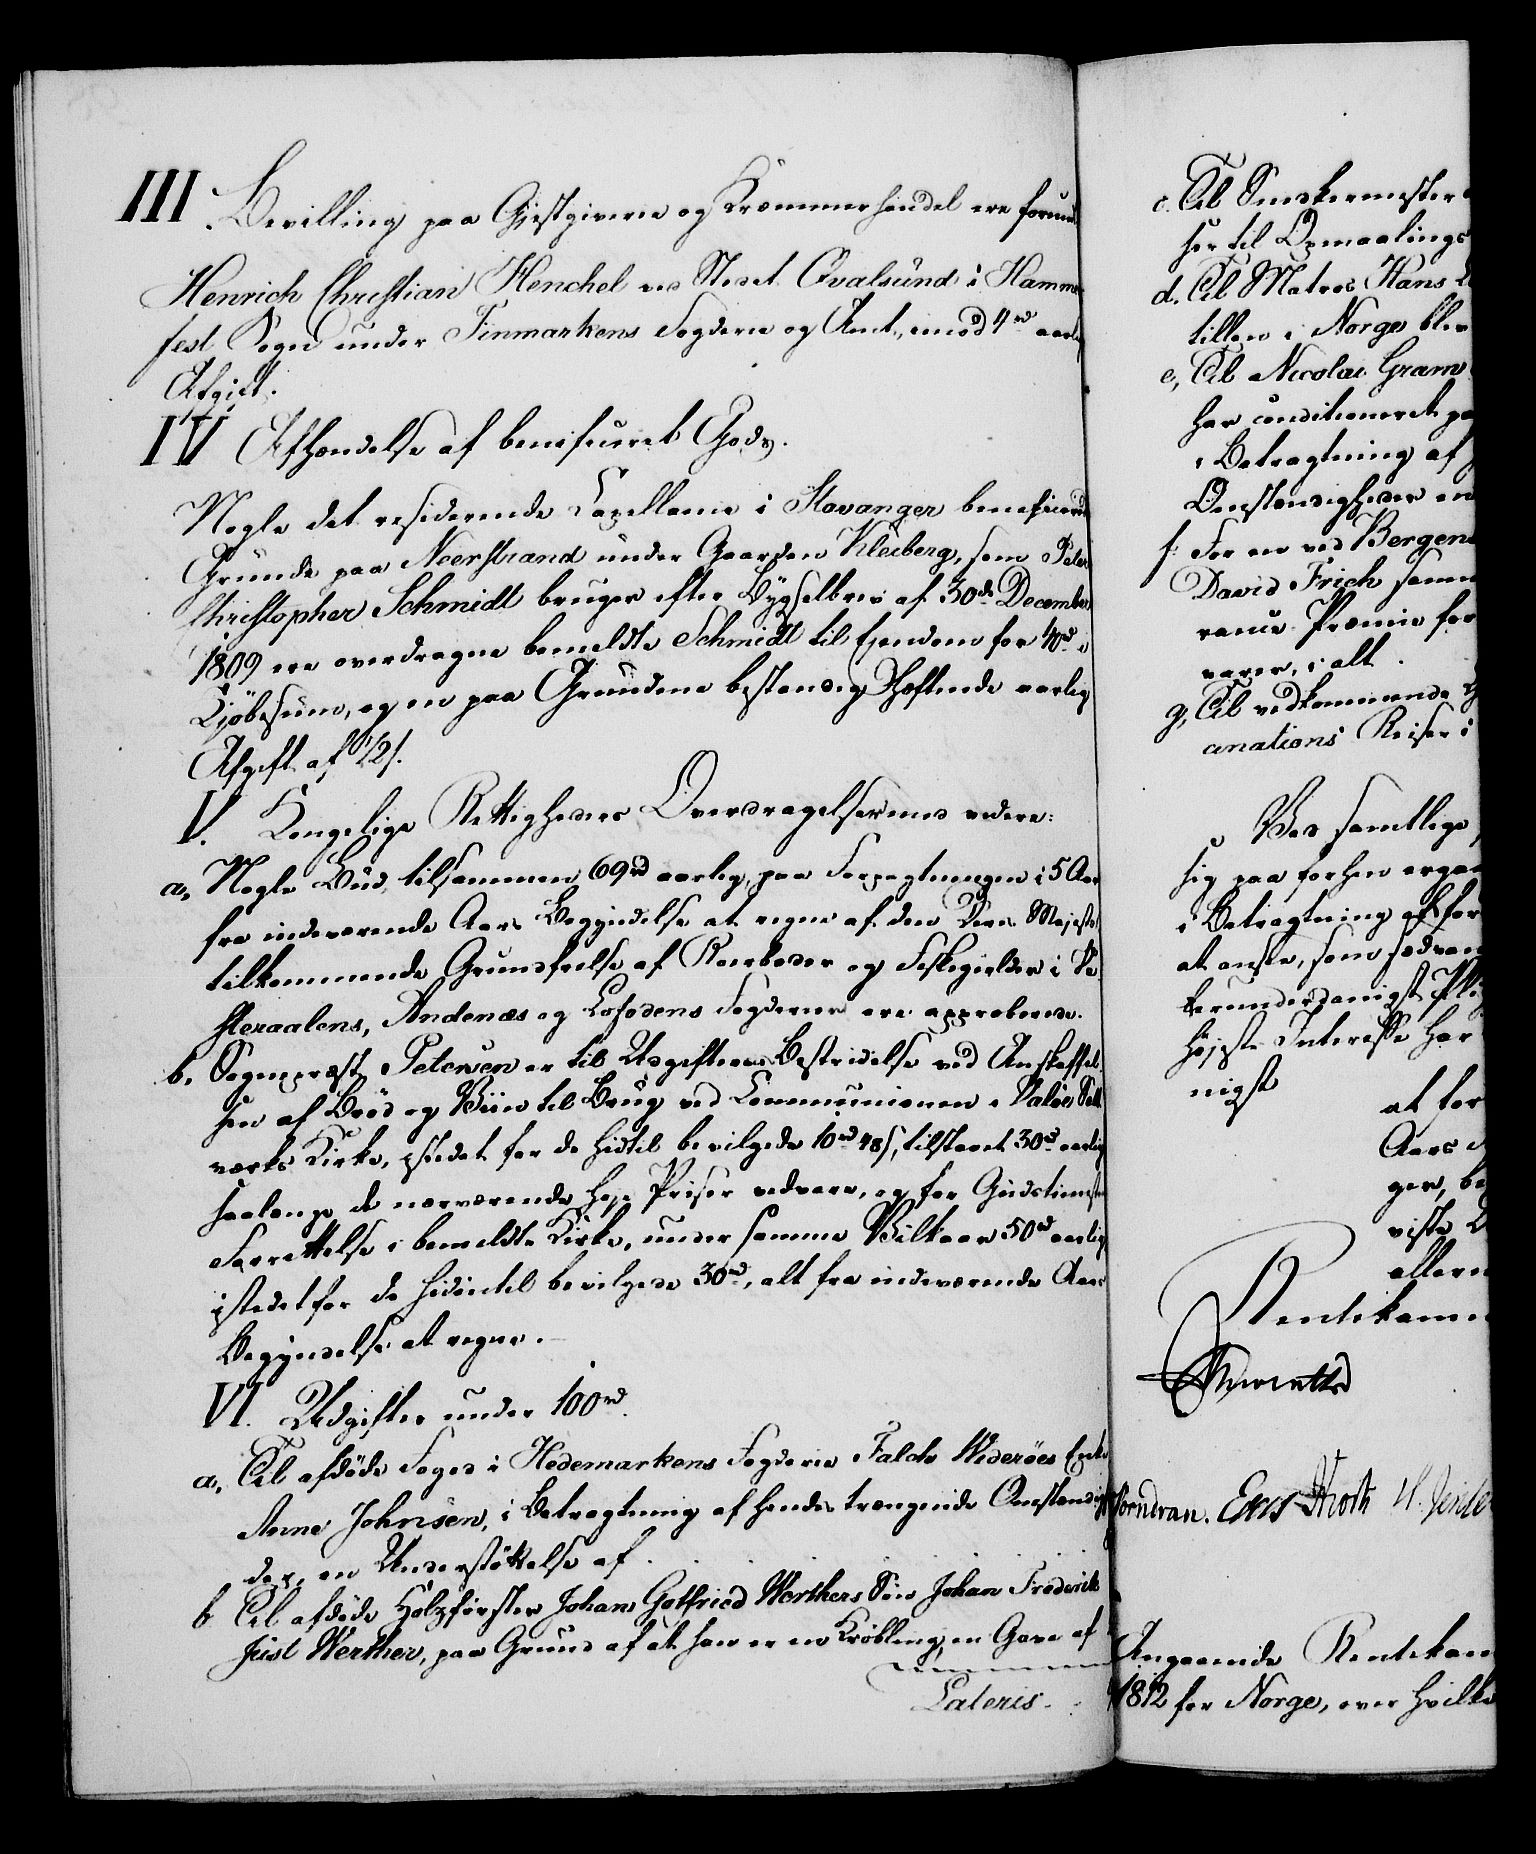 III. Bevilling paa Gjestgiverie og Kræmmerhandel ere forund
Henrich Christian Henchel ved Stedet Qvalsund i Hammer
fest Sogn under Finmarkens Fogderie og Amt, imod 4rd aarlig
Afgift.
IV Afhændelse af beneficeret Gods.
Nogle det residerende Capellanie i Stavanger beneficerede
Grunde paa Neerstrand under Gaarden Kleiberg, som Peter
Christopher Schmidt bruger efter Bygselbrev af 30de December
1809 ere overdragne bemeldte Schmidt til Ejendom for 40rd i
Kjøbesum, og en paa Grundene bestandig Heftende aarlig
Afgift af 12s.
V. Kongelige Rettigheders Overdragelser med videre:
a, Nogle Bud, tilsammen 69rd aarlig, paa Forpagtningen i 5 Aar
fra indeværende Aars Begyndelse at regne af den Deres Majestæt
tilkommende Grundfrelse af Roerboder og Fiskegielder i Ve
steraalens, Andenæs og Lofodens Fogderier ere approberede.
b. Sognepræst Petersen er til Udgifternes Bestridelse ved Anskaffel
sen af Brød og Viin til Brug ved Communionen i Valøe Salt
værks Kirke, istedet for de hidtil bevilgede 10rd 48s, tilstaaet 30rd aarlig
saalænge de nærværende høje Priser vedvare, og for Gudstjenestens
Forrettelse i bemeldte Kirke, under samme Vilkaar 50rd aarlig
istedetfor de hidindtil bevilgede 30rd, alt fra indeværende Aars
Begyndelse at regne.
VI. Udgifter under 100rd.
a, Til afdøde Foged i Hedemarkens Fogderie Falch Widerøes Enke
Anne Johnsen, i Betragtning af hendes trængende Omstændighe
der, en Understøttelse af
b Til afdøde Holzførster Johan Gotfried Werthers Søn Johan Frederik
Just Werther, paa Grund af at han er en Krøbling, en Gave af
Lateris
c. Til Snedkermester
her til Opmaalings
d. Til Matros Hans
tillen i Norge blev
e, Til Nicolai Gram
har conditioneret paa
i Betragtning af
Omstændigheder en
f. For en ved Bergens
David Frich samme
rance Præmie for
varer, i alt
g, Til vedkommende
anations Reiser i
Ved samtlige
sig paa forhen ergaa
i Betragtning af for
at ansee, som sædvan
herunderdanigst
Højeste Interesse har
nigst
at for
Aars
ger, be
viste
allern
Rentekamm
Vorndran. Knoph
Angaaende Rentekam
1812 for Norge, over hvilke